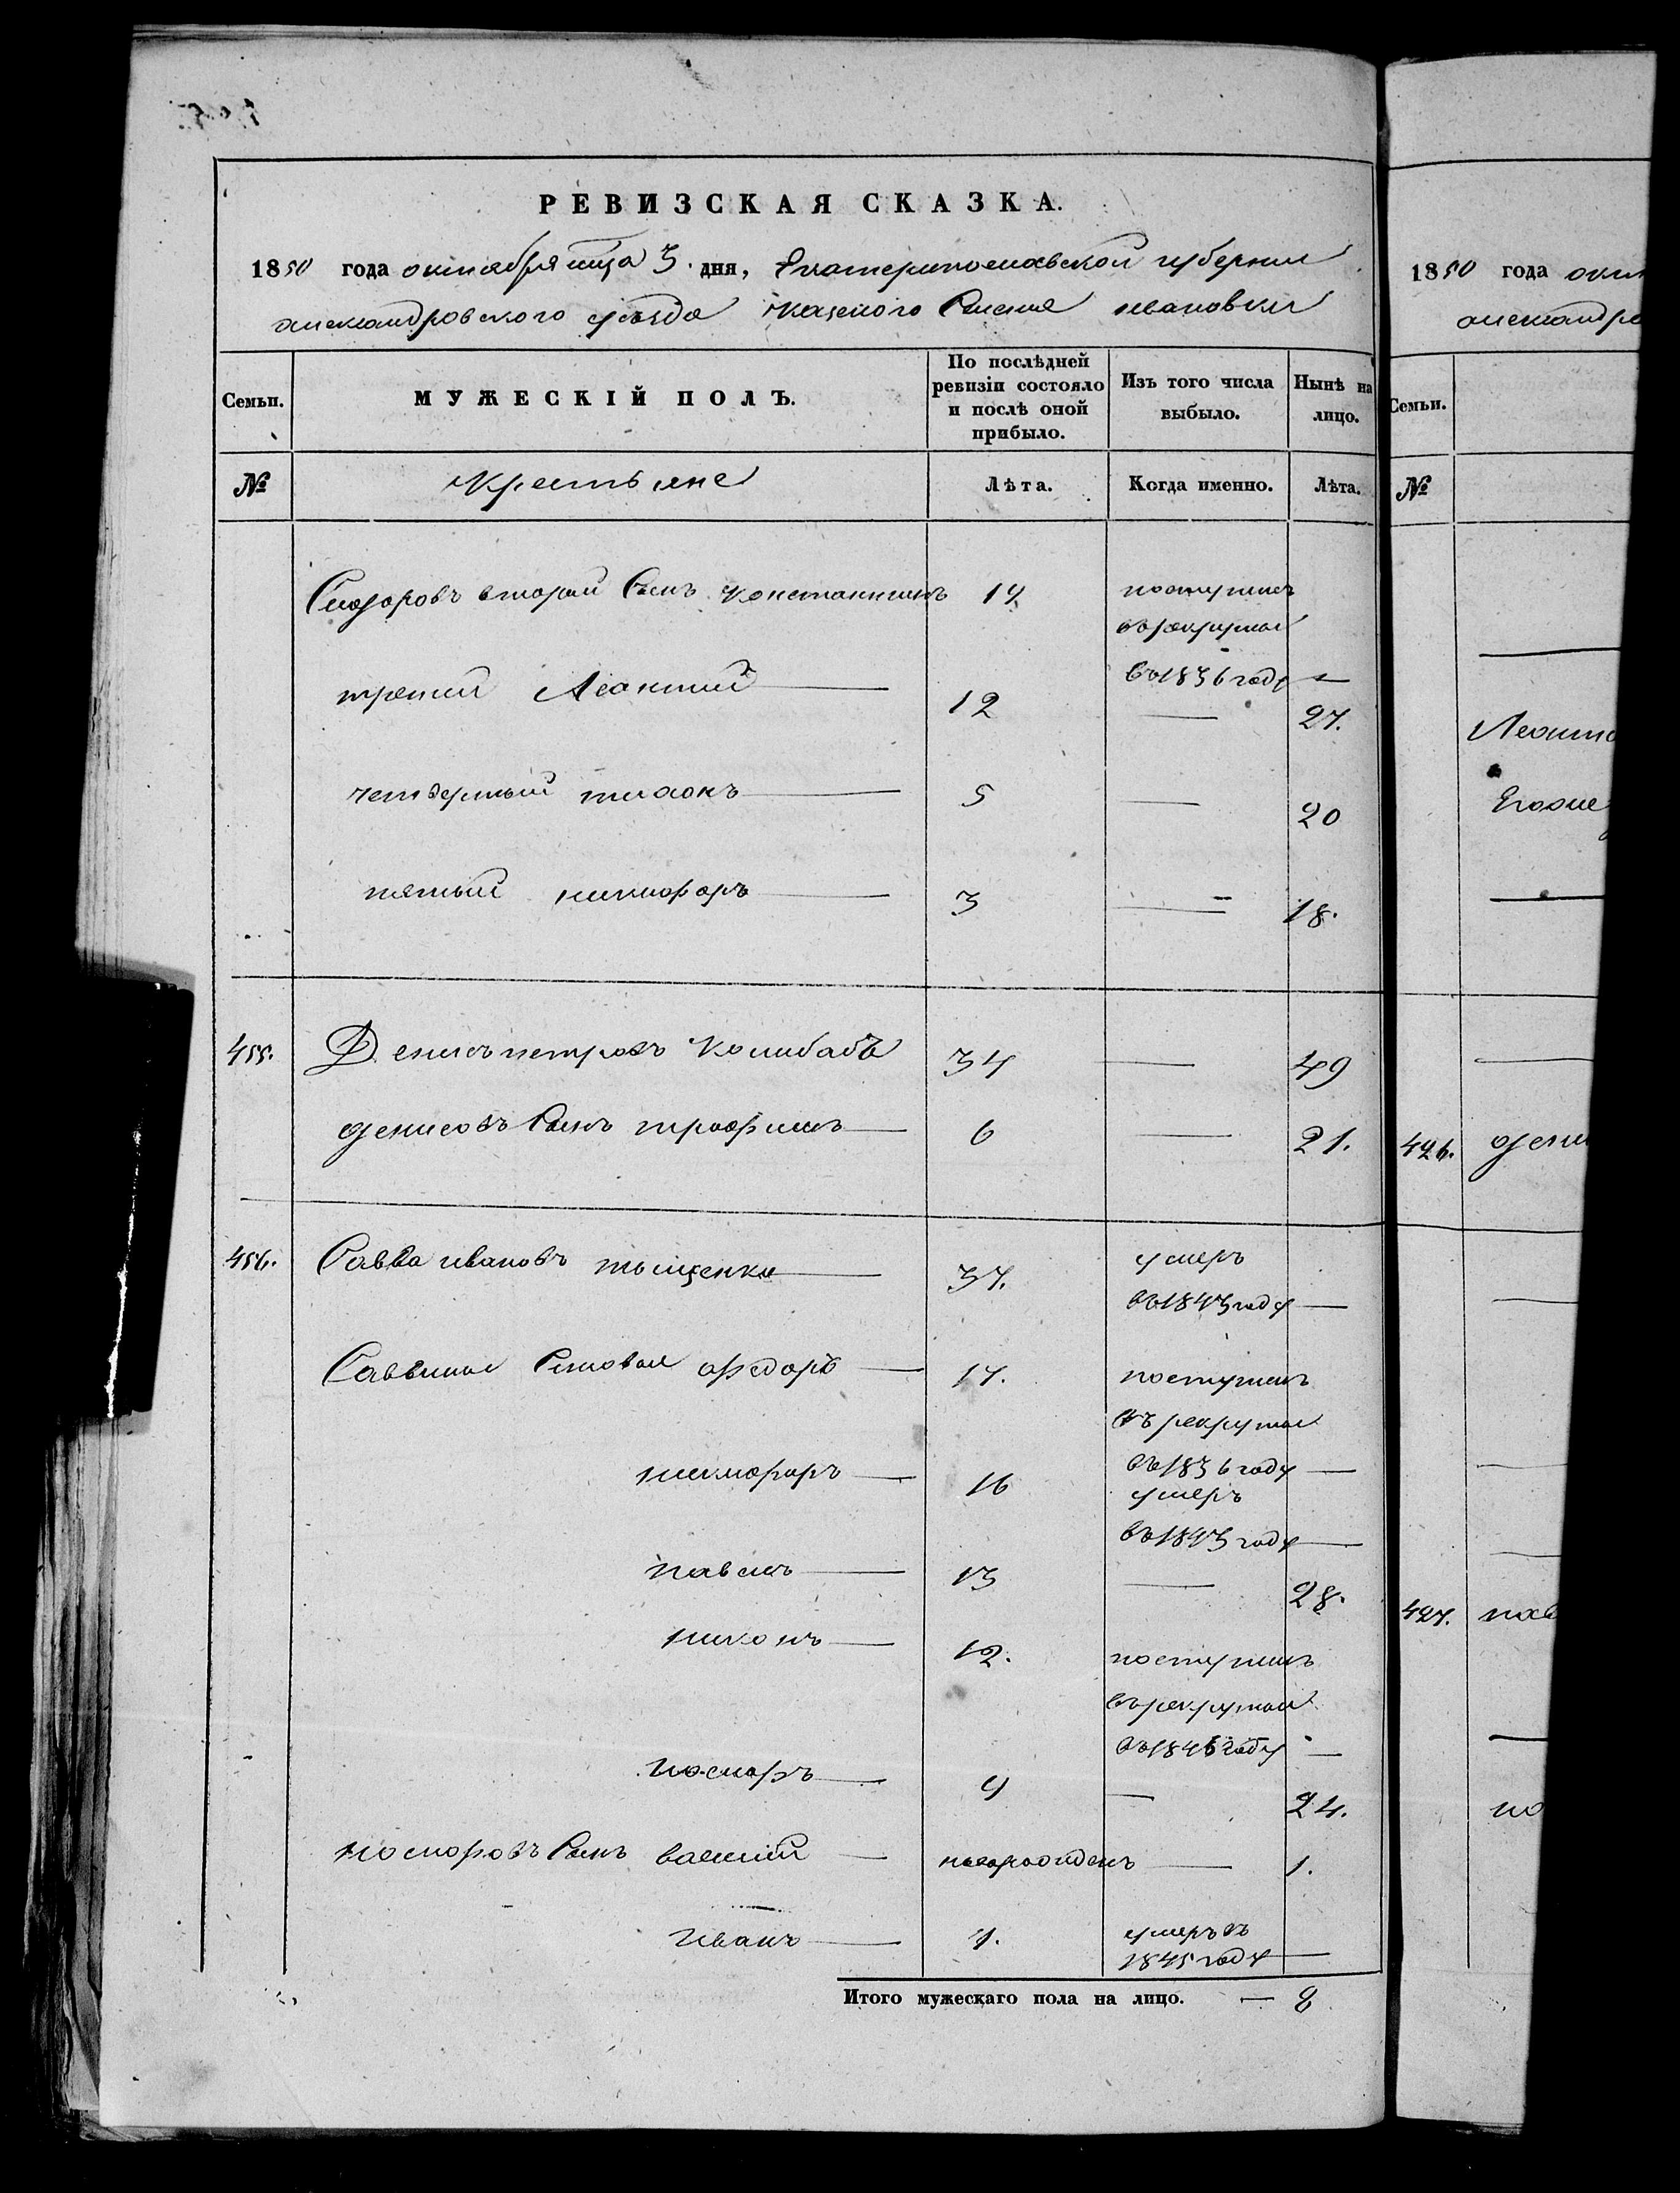 РЕВИЗСКАЯ СКАЗКА.
1850 года октября мца 3. дня, Екатеринославской губернии
александровского уезда казенного Селения ивановки
Семьи. МУЖЕСКІЙ ПОЛЪ. По послѣдней ревизіи состояло и послѣ оной прибыло. Изъ того числа выбыло. Нынѣ на лицо.
№ Крестьяне Лѣта. Когда именно. Лѣта.
Сидоровъ второй Сынъ константинъ 14 поступилъ
въ рекруты
въ 1836 году —
третий Леонтий 12 — 27.
четвертый тихонъ 5 — 20
пятый никифоръ 3 — 18.
455. Денисъ петровъ 34 — 49
денисовъ Сынъ трофимъ 6 — 21.
456. Савва ивановъ тыщенко 37. умеръ
въ 1843 году —
Саввины Сыновья федоръ 17. поступилъ
въ рекруты
въ 1836 году —
никифоръ 16 умеръ
въ 1843 году —
павелъ 13 — 28.
никонъ 12. поступилъ
въ рекруты
въ 1846 году —
9 — 24.
Сынъ василий новорожденъ — 1.
иванъ 7. умеръ въ
1845 году —
Итого мужескаго пола на лицо. — 8
1850 года окт
александро
Семьи.
№
Леонт
426. дени
427. пав